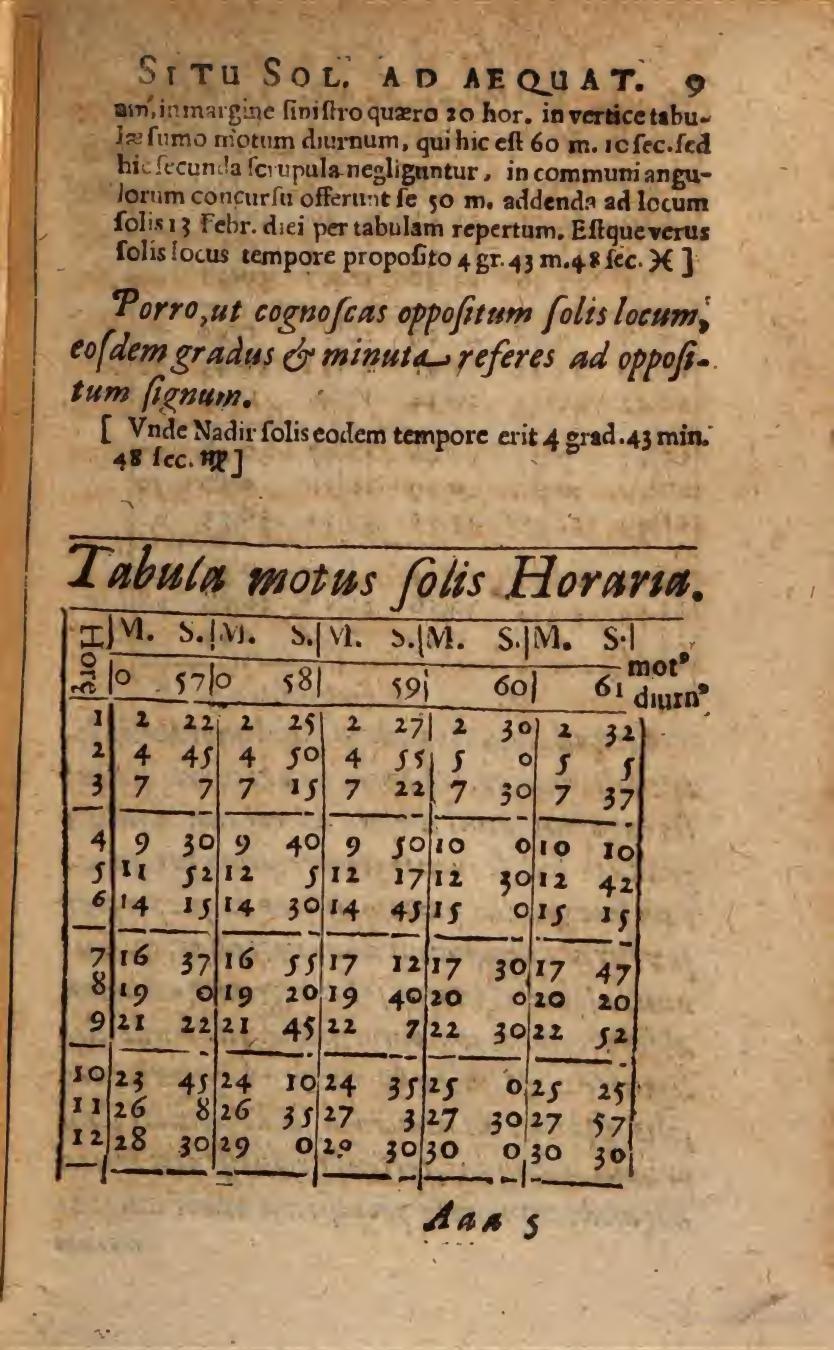 SITU SOL. AD AEQUAT. 9
am, in margine siniſtro quæro 20 hor. in vertice tabu-
læ ſumo motum diurnum, qui hic eſt 60 m. 10 ſec. ſed
hic ſecunda ſcrupula negliguntur, in communi angu-
lorum concurſu offerunt ſe 50 m. addenda ad locum
ſolis 13 Febr. diei per tabulam repertum. Eſtque verus
ſolis locus tempore propoſito 4 gr. 43 m. 48 ſec. ♓ ]
Porro, ut cognoſcas oppoſitum ſolis locum,
eoſdem gradus & minuta referes ad oppoſi-
tum ſignum.
[ Vnde Nadir ſolis eodem tempore erit 4 grad. 43 min.
48 ſec. ♍ ]
Tabula motus ſolis Horaria.
Horę M. S. M. S. M. S. M. S. M. S.
0 57 0 58 59 60 61 motꝰ diurnꝰ
1 2 22 2 25 2 27 2 30 2 32
2 4 45 4 50 4 55 5 0 5 5
3 7 7 7 15 7 22 7 30 7 37
4 9 30 9 40 9 50 10 0 10 10
5 11 52 12 5 12 17 12 30 12 42
6 14 15 14 30 14 45 15 0 15 15
7 16 37 16 55 17 12 17 30 17 47
8 19 0 19 20 19 40 20 0 20 20
9 21 22 21 45 22 7 22 30 22 52
10 23 45 24 10 24 35 25 0 25 25
11 26 8 26 35 27 3 27 30 27 57
12 28 30 29 0 29 30 30 0 30 30
Aaa 5